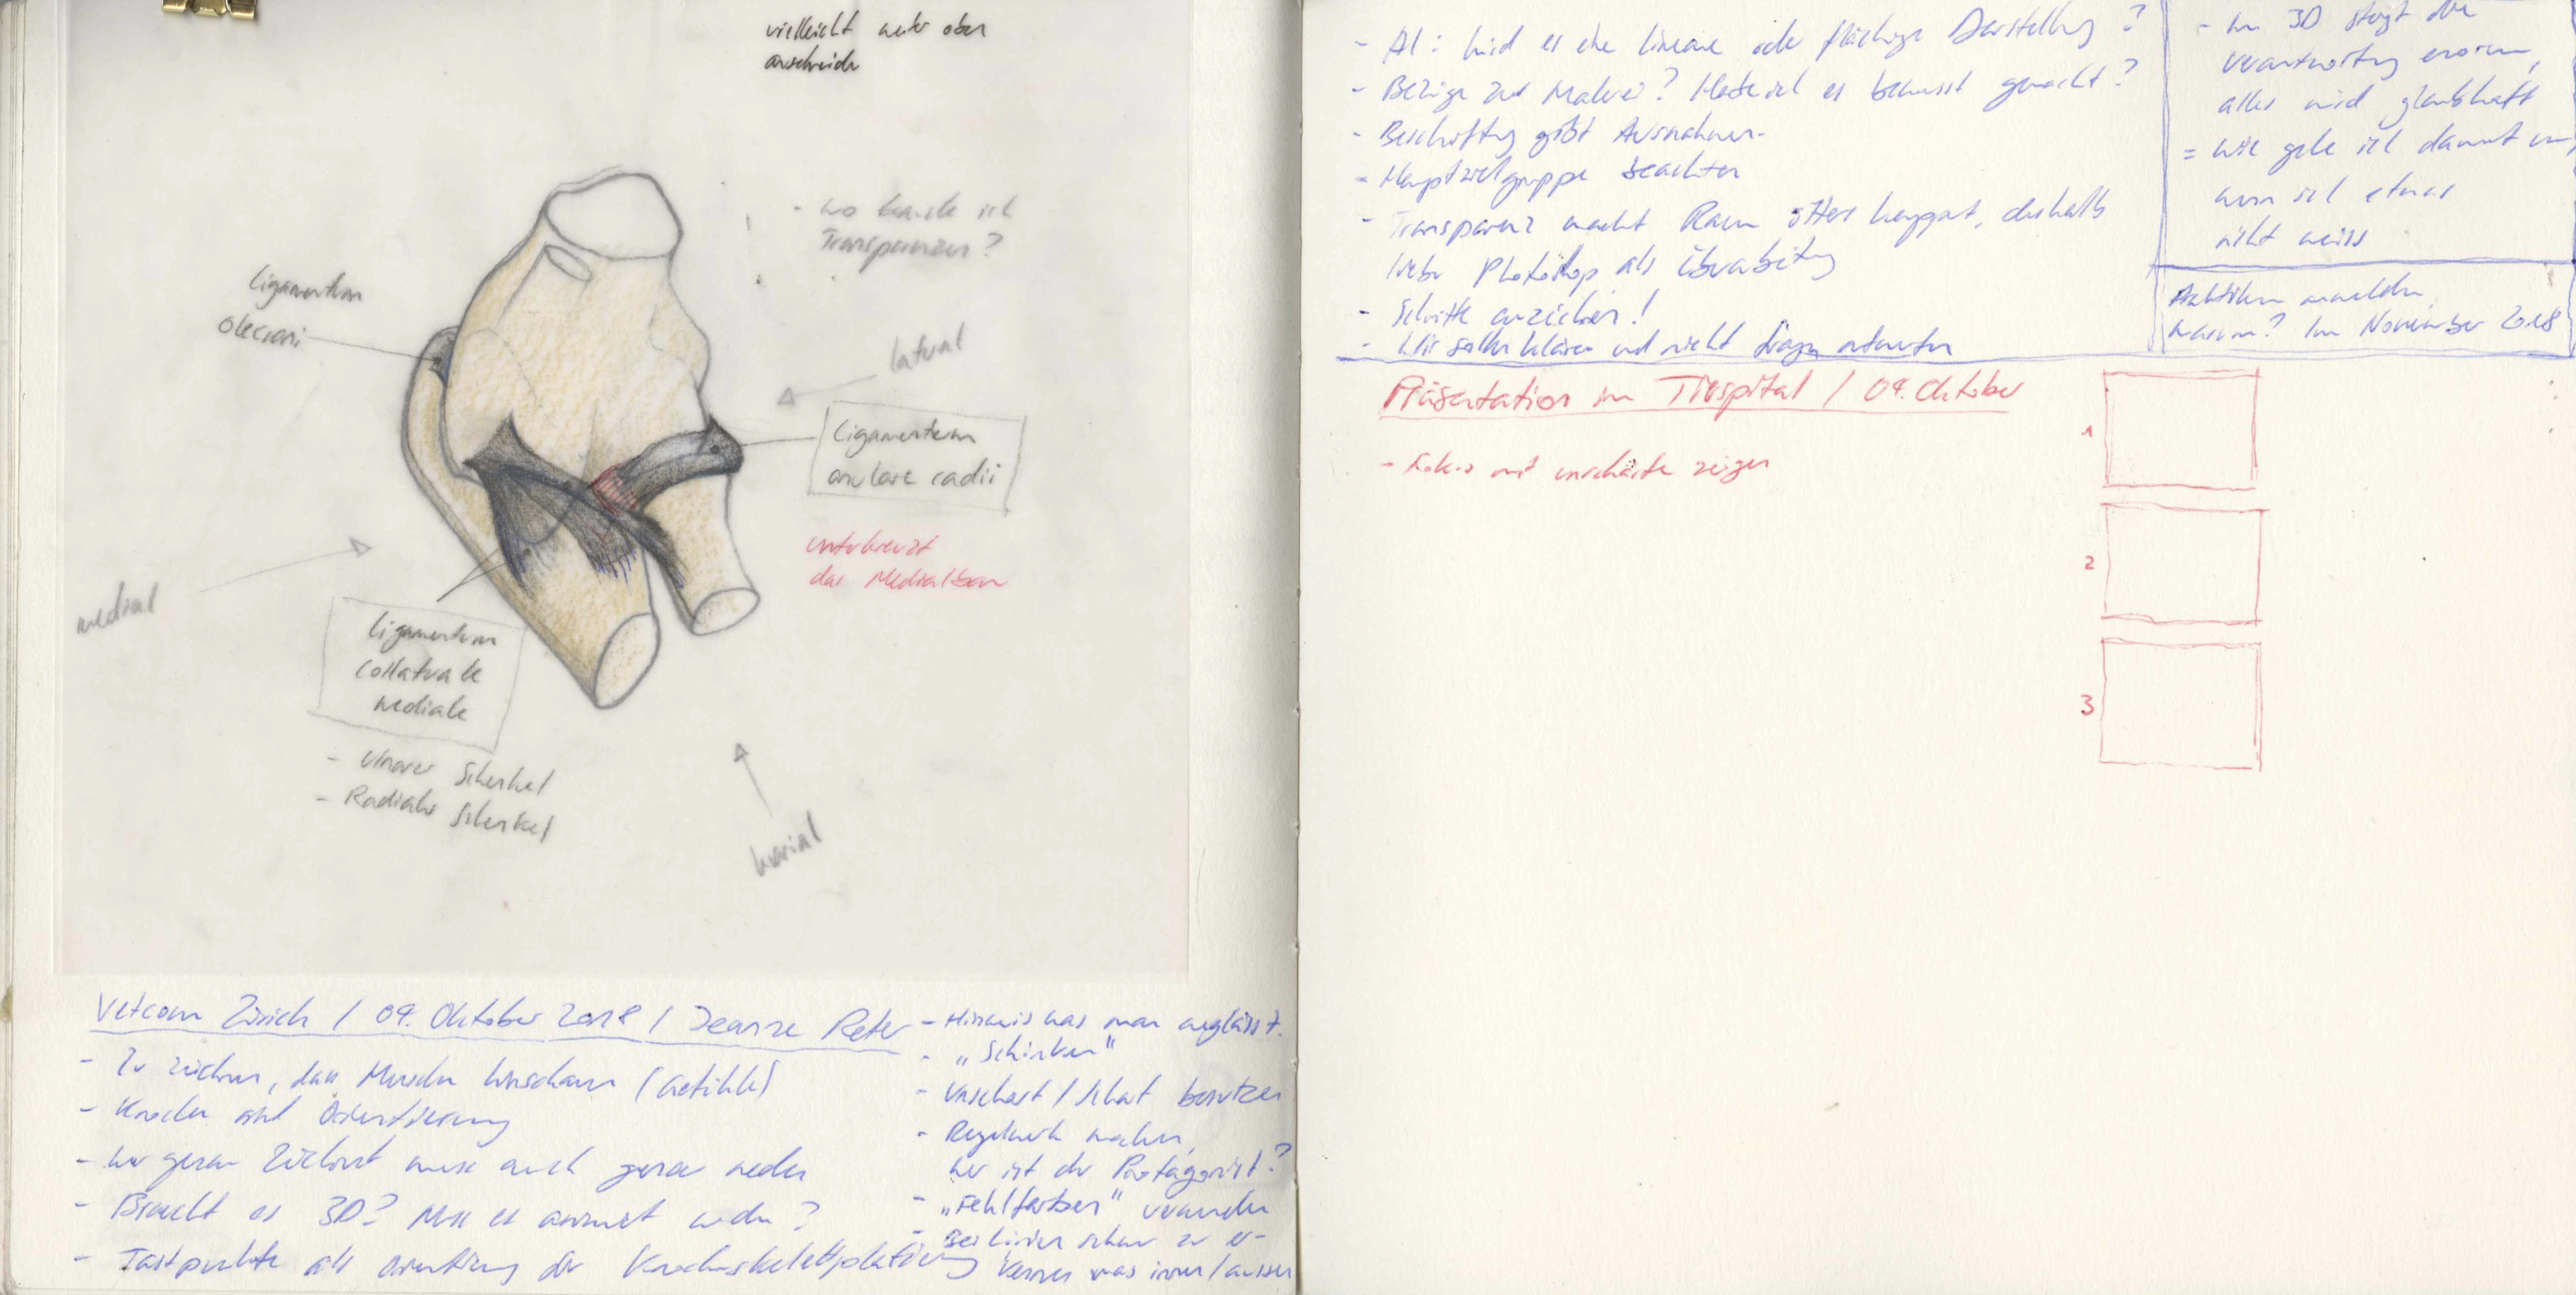 vielleicht weiter oben
anschneiden
- Wo brauche ich
Transparenzen?
Ligamentum
olecrani
lateral
Ligamentum
anulare radii
unterkreuzt
das Medialban
medial
Ligamentum
collaterale
mediale
- Ulnarer Schenkel
- Radialer Schenkel
Vetcom Zürich / 09. Oktober 2018 / Jeanne Peter
- Zu zeichnen, dass Muskeln
- Knochen sind Orientierung
- Wer genau zeichnet muss auch genau
- Braucht es 3D? Muss es animiert werden?
- Tastpunkte als Orientierung der
- Hinweis was man weglässt.
- „Schinken"
- Unscharf / scharf benutzen
- Regelwerk machen,
wer ist der Protagonist?
- „Fehlfarben" verwenden
- Bei Linien schwer zu er-
kennen was innen/aussen
- A1: Wird es eher lineare oder flächige Darstellung?
- Bezüge zur Malerei? Material es bewusst gemacht?
- Beschriftung gibt Ausnahmen.
- Hauptzielgruppe beachten
- Transparenz macht Raum öfters kaputt, deshalb
lieber Photoshop als Überarbeitung
- Schritte anzeichen!
- Wir sollen klären und nicht Fragen antworten
- Im 3D steigt die
Verantwortung enorm,
alles wird glaubhaft
= Wie gehe ich damit um,
wenn ich etwas
nicht weiss
anmelden,
warum? Im November 2018
Präsentation im Tierspital / 09. Oktober
- Fokus mit unschärfe zeigen
1
2
3